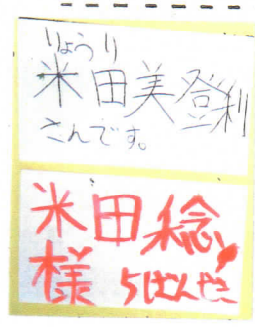 りょうり
米田美登利
さんです。
米田稔
様 らばんやき